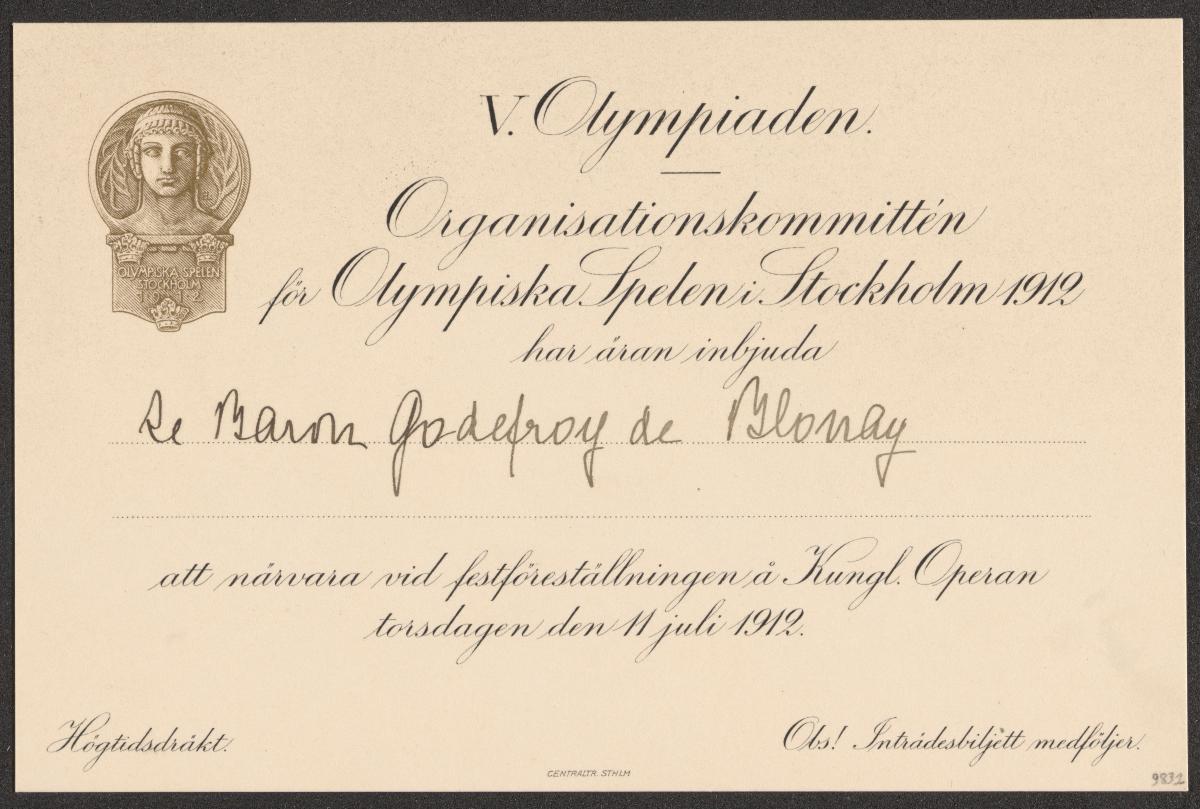 V. Olympiaden.
Organisationskommittén
för Olympiska Spelen i Stockholm 1912
har äran inbjuda
Le Baron Godefroy de Blonay
att närvara vid festföreställningen å Kungl. Operan
torsdagen den 11 juli 1912.
Högtidsdräkt.
Obs! Inträdesbiljett medföljer.
OLYMPISKA SPELEN
STOCKHOLM
1912
CENTRALTR. STHLM
9832